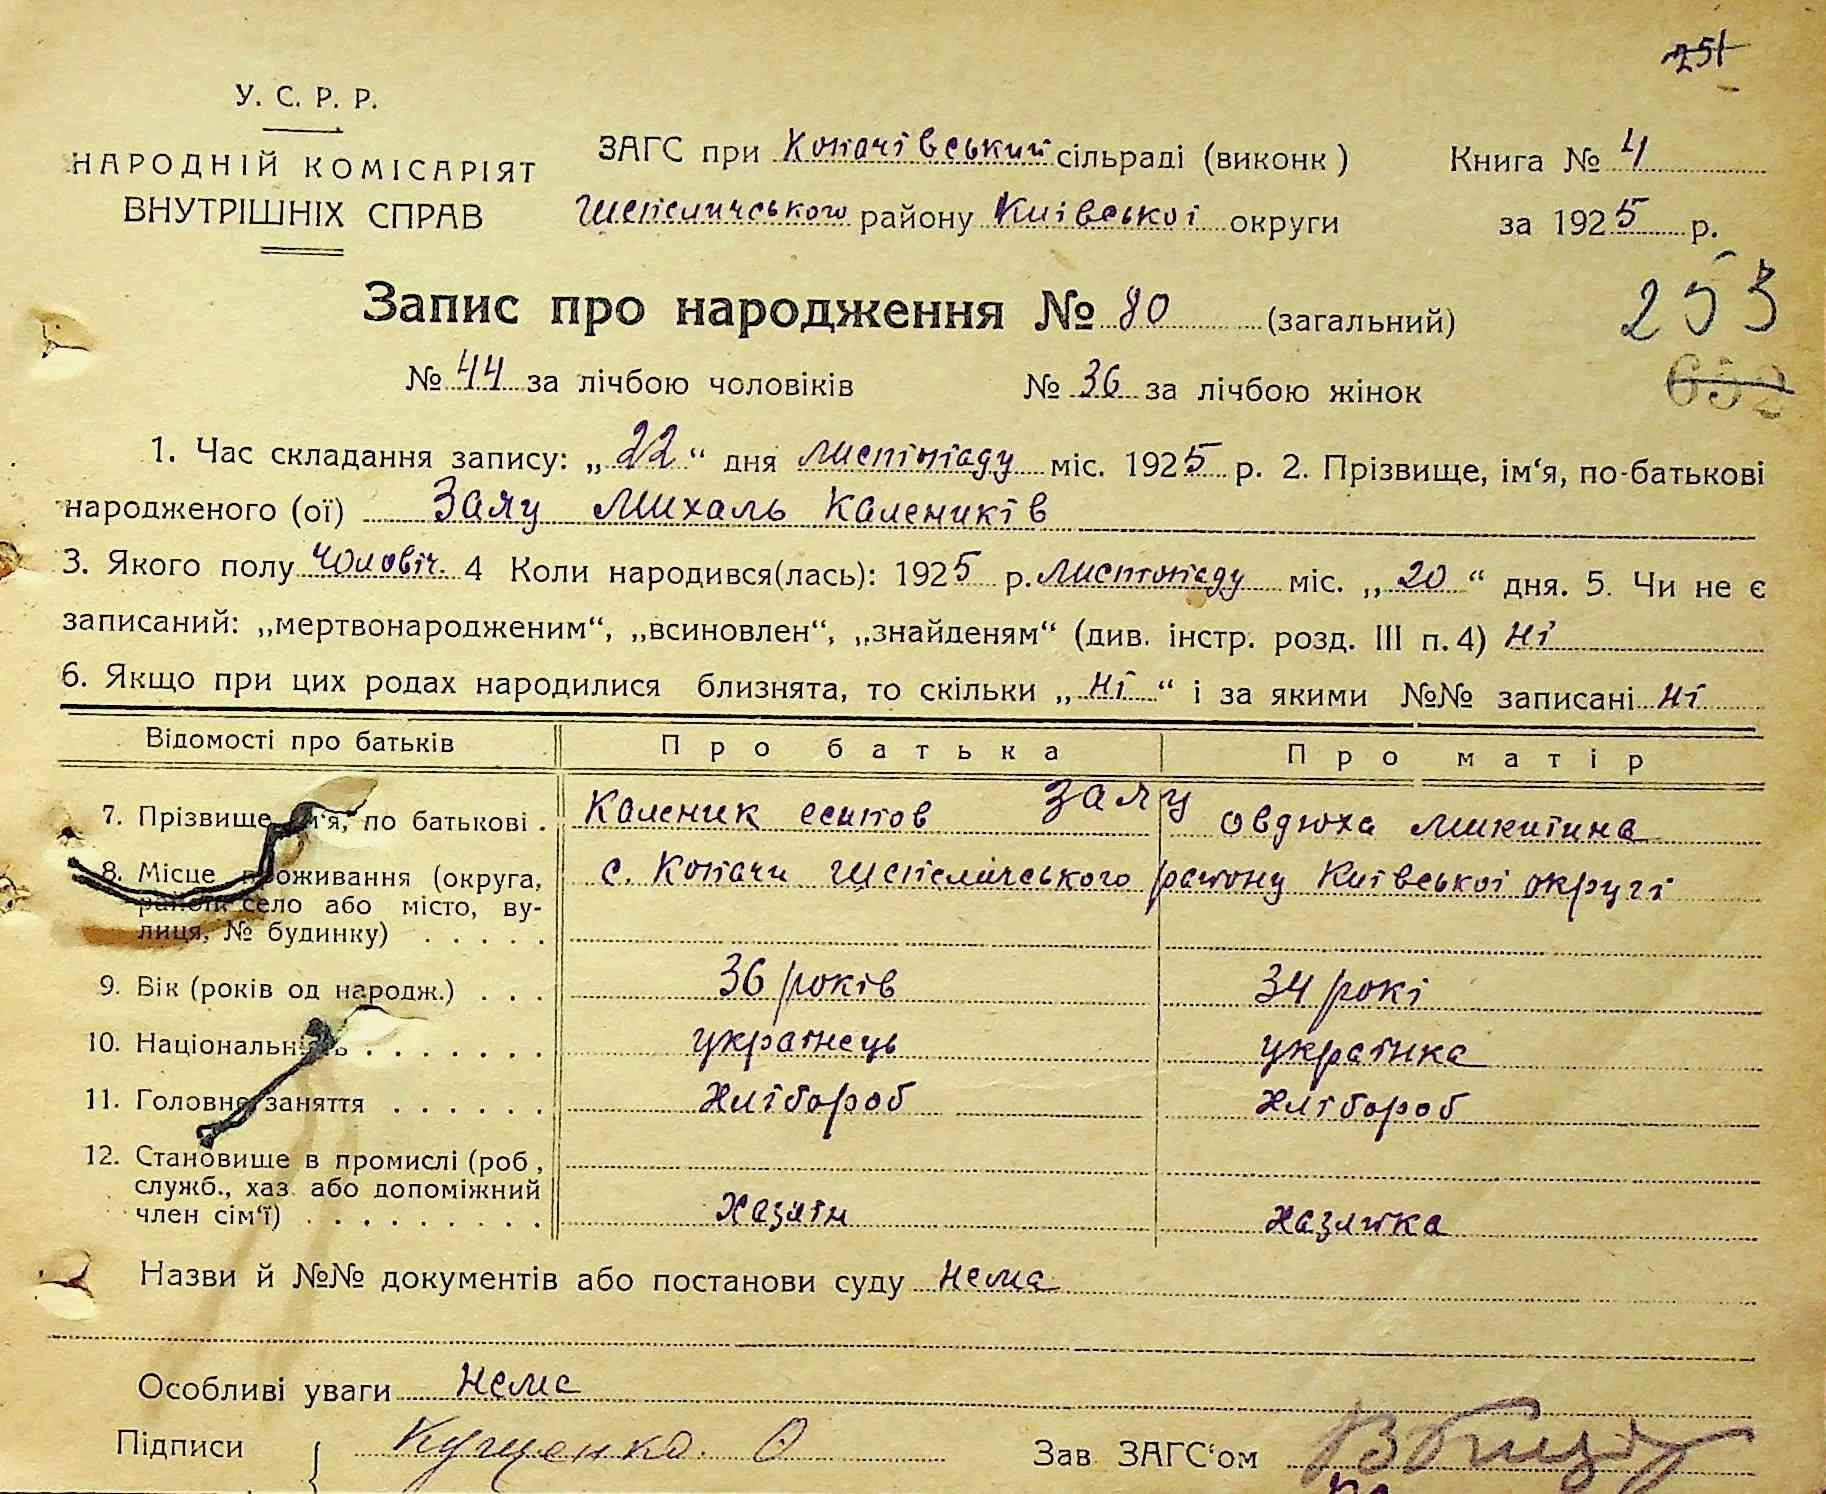 251
У. С. Р. Р.
НАРОДНІЙ КОМІСАРІЯТ
ВНУТРІШНІХ СПРАВ
ЗАГС при Копачівський сільраді (виконк)
Шепеличського району Київської округи
Книга № 4
за 1925 р.
Запис про народження № 80 (загальний)
253
№ 44 за лічбою чоловіків № 36 за лічбою жінок
652
1. Час складання запису: „22“ дня листопаду міс. 1925 р. 2. Прізвище, ім‘я, по-батькові
народженого (ої) Заяу Михаль Калеників
3. Якого полу чоловіч. 4 Коли народився(лась): 1925 р. листопаду міс. „20“ дня. 5. Чи не є
записаний: „мертвонародженим“, „всиновлен“, „знайденям“ (див. інстр. розд. III п. 4) ні
6. Якщо при цих родах народилися близнята, то скільки „ні“ і за якими №№ записані ні
Відомості про батьків Про батька Про матір
7. Прізвище ім‘я, по батькові. Каленик есипов Заяу овдюха микитина
8. Місце проживання (округа, с. Копачи Шепелічського району Київської округі
район село або місто, ву-
лиця, № будинку) . . . . .
9. Вік (років од народж.) . . . 36 років 34 рокі
10. Національність . . . . . . . українець украінка
11. Головне заняття . . . . . . хлібороб хлібороб
12. Становище в промислі (роб,
служб., хаз. або допоміжний
член сім‘ї) . . . . . . . . . хазяїн хазяйка
Назви й №№ документів або постанови суду нема
Особливі уваги нема
Підписи Кущенко. О Зав ЗАГС‘ом